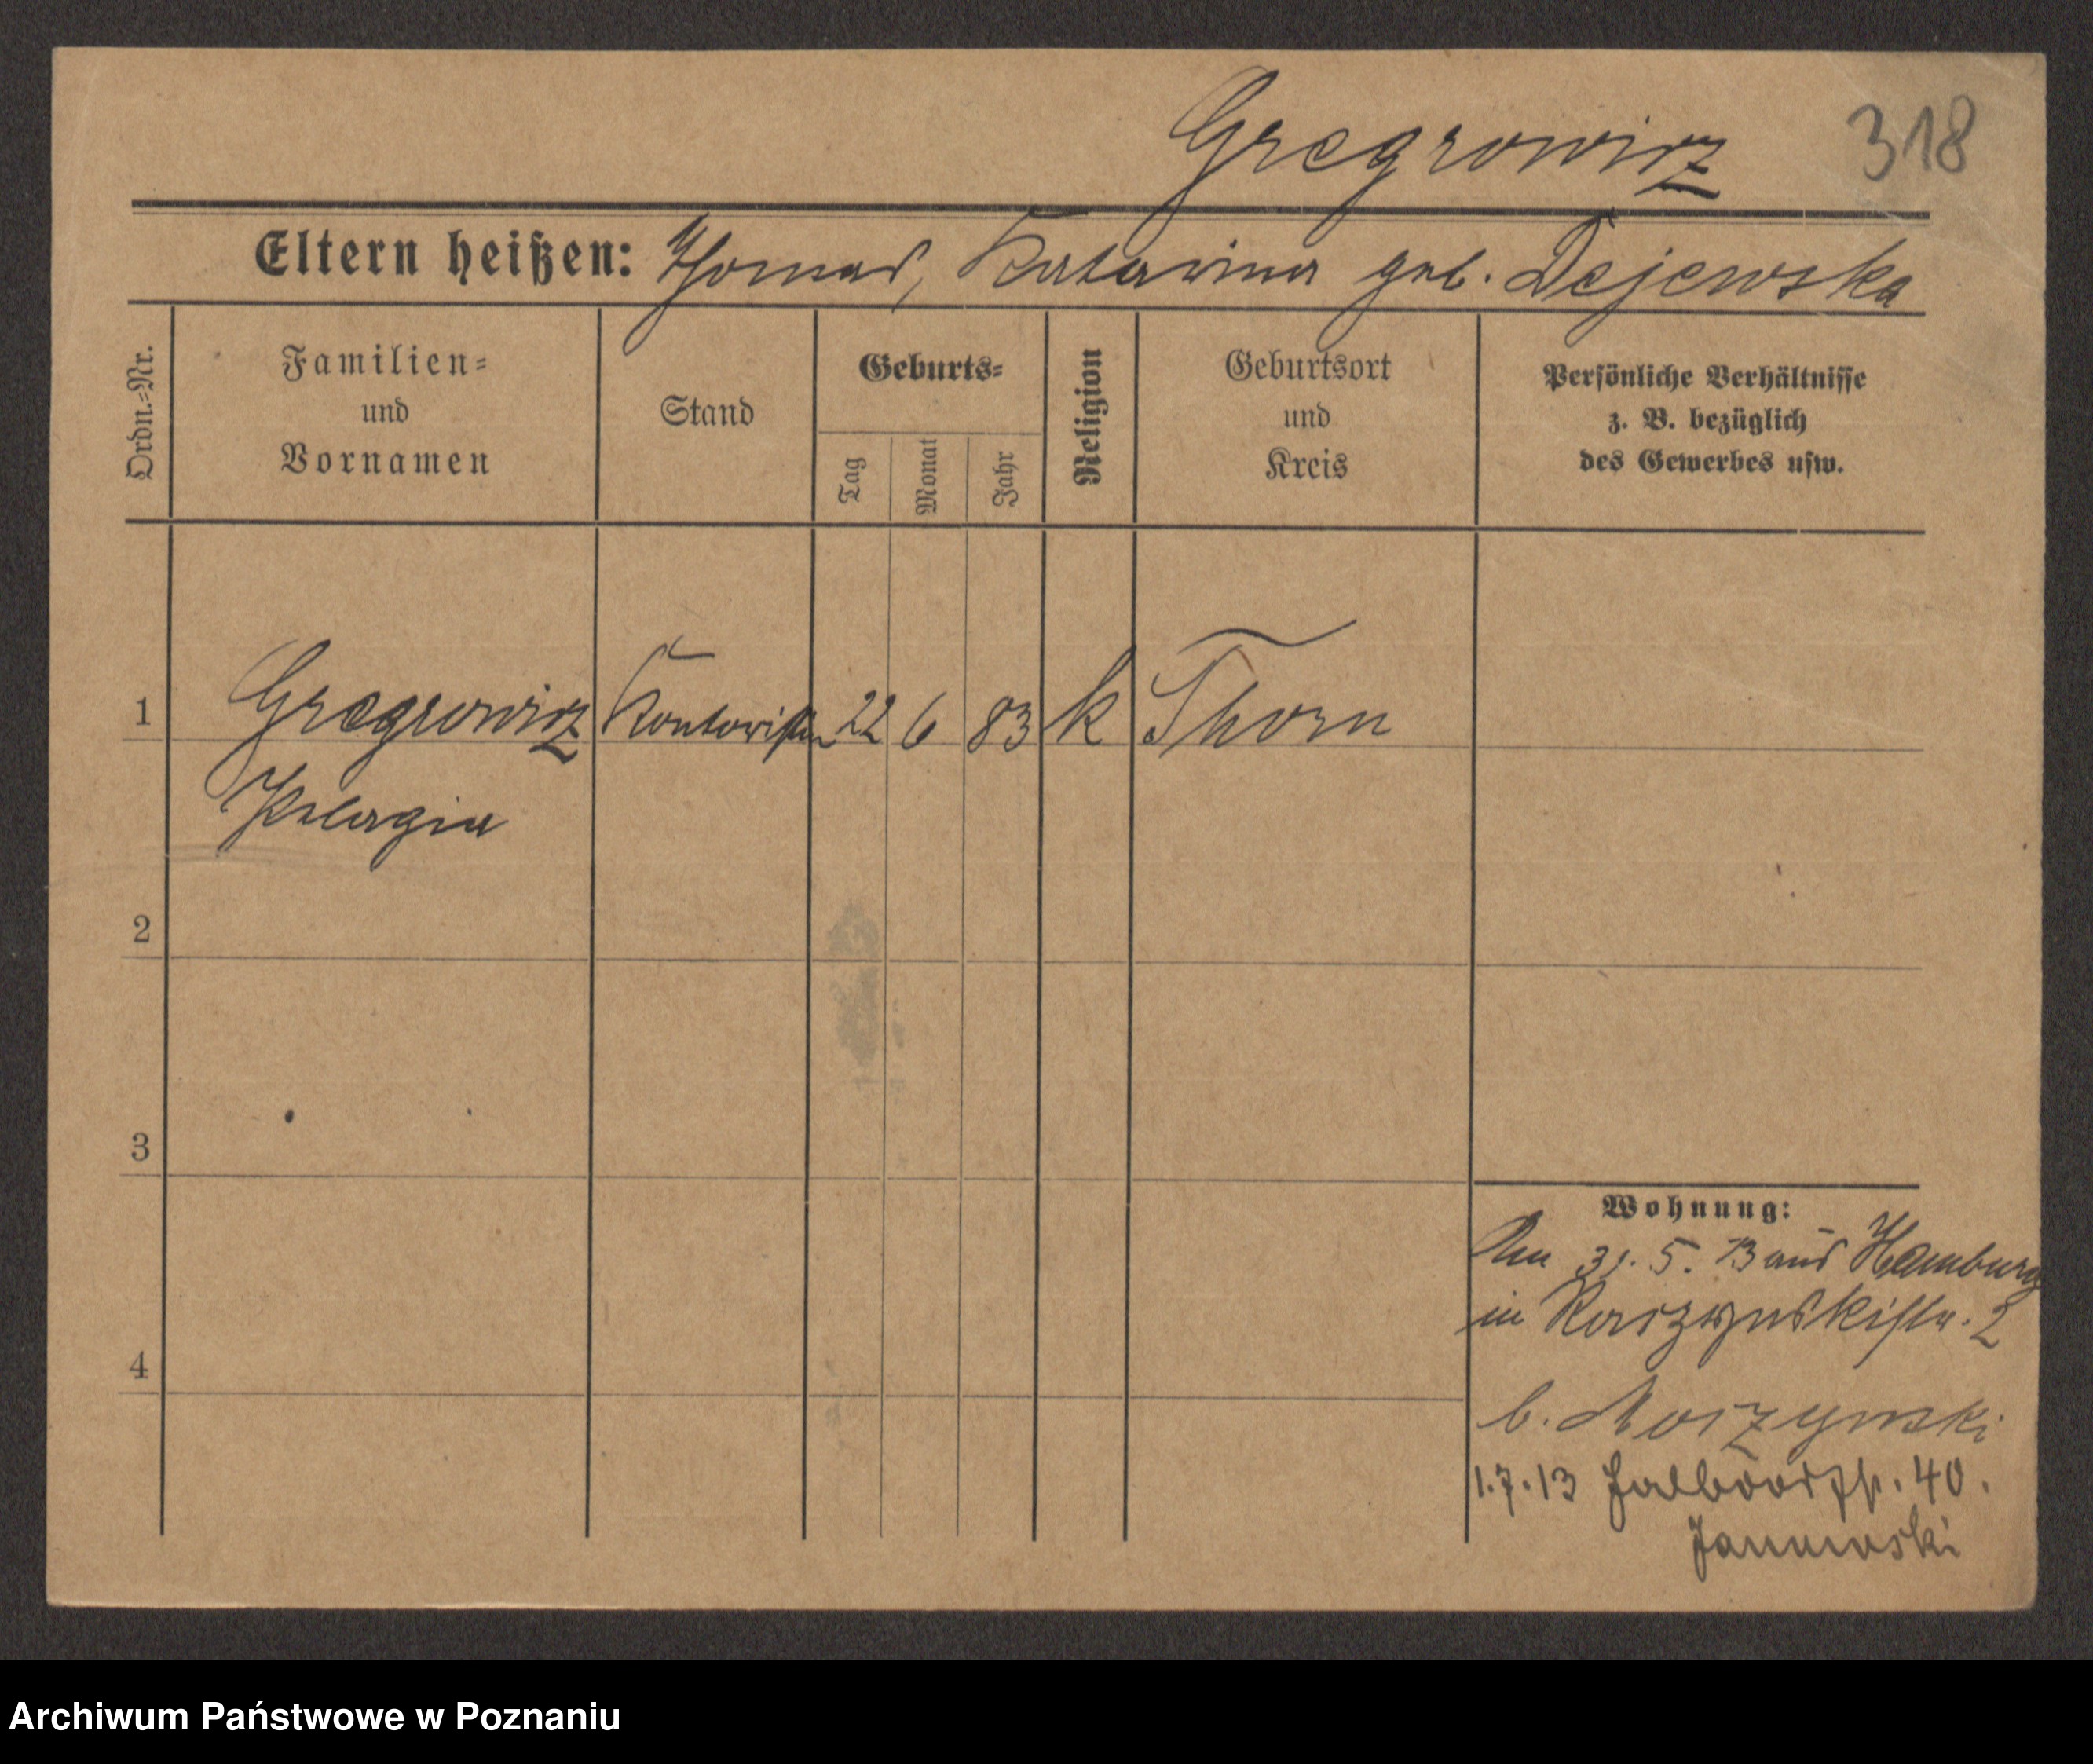 Gregrowicz 318
Eltern heißen: Thomas, Katarina geb. Dejewska
Ordn.-Nr.
Familien-
und
Vornamen
Stand
Geburts-
Tag
Monat
Jahr
Religion
Geburtsort
und
Kreis
Persönliche Verhältnisse
z. B. bezüglich
des Gewerbes usw.
1 Gregrowicz Kontoristin 22 6 83 k Thorn
Pelagia
2
3
4
Wohnung:
An 31. 5. 13 aus Hamburg
in 2
b. Moszynski
1.7.13 40.
Archiwum Państwowe w Poznaniu